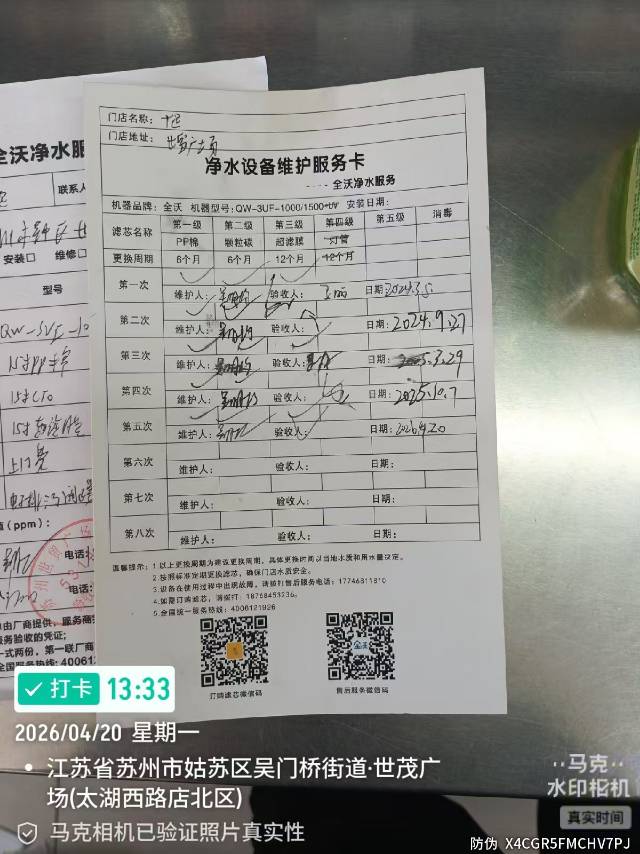 门店名称：
门店地址：世茂广场店
净水设备维护服务卡
全沃净水服务
机器品牌：全沃 机器型号：QW-3UF-1000/1500+UV 安装日期：
滤芯名称 第一级 第二级 第三级 第四级 第五级 消毒
PP棉 颗粒碳 超滤膜 灯管
更换周期 6个月 6个月 12个月 12个月
第一次
维护人： 验收人： 日期：2024.3.5
第二次
维护人： 验收人： 日期：2024.9.27
第三次
维护人： 验收人： 日期：2025.3.29
第四次
维护人： 验收人： 日期：2025.10.7
第五次
维护人： 验收人： 日期：2026.4.20
第六次
维护人： 验收人： 日期：
第七次
维护人： 验收人： 日期：
第八次
维护人： 验收人： 日期：
温馨提示：1.以上更换周期为建议更换周期，具体更换时间以当地水质和用水量决定。
2.按照标准定期更换滤芯，确保门店水质安全。
3.设备在使用过程中出现故障，请拨打售后服务电话：17746811810
4.如需订购滤芯，请拨打：18768453236
5.全国统一服务热线：4006121926
订购滤芯微信码 售后服务微信码
全沃净水服
联系人
安装□ 维修□
型号
15寸PP棉
15寸CTO
值（ppm）：
电话
电话：
由厂商提供，服务商
服务验收的凭证；
一式两份，第一联厂商
全国服务热线：40061
打卡 13:33
2026/04/20 星期一
江苏省苏州市姑苏区吴门桥街道·世茂广
场(太湖西路店北区)
马克相机已验证照片真实性
马克
水印相机
真实时间
防伪 X4CGR5FMCHV7PJ